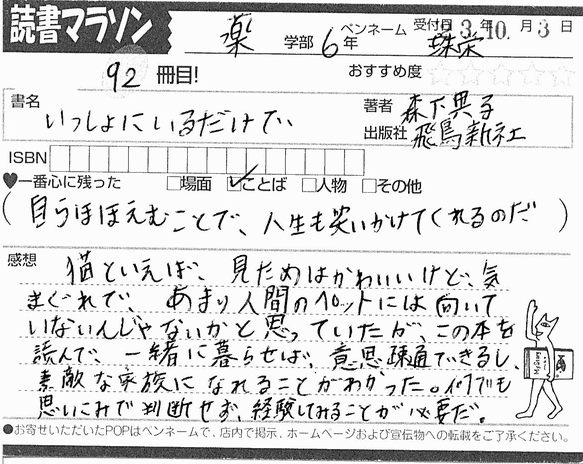 読書マラソン
薬 学部 6年 ペンネーム 珠栄 受付日 3年 10月 3日
92 冊目! おすすめ度 ☆☆☆☆☆
書名 いっしょにいるだけで 著者 森下典子
出版社 飛鳥新社
ISBN
♥一番心に残った □場面 ☑ことば □人物 □その他
(自らほほえむことで、人生も笑いかけてくれるのだ)
感想 猫といえば、見ためはかわいいけど、気
まぐれで、あまり人間のペットには向いて
いないんじゃないかと思っていたが、この本を
読んで、一緒に暮らせば、意思疎通できるし、
素敵な家族になれることがわかった。何でも
思いこみで判断せず、経験してみることが必要だ。
●お寄せいただいたPOPはペンネームで、店内で掲示、ホームページおよび宣伝物への転載をご了承ください。